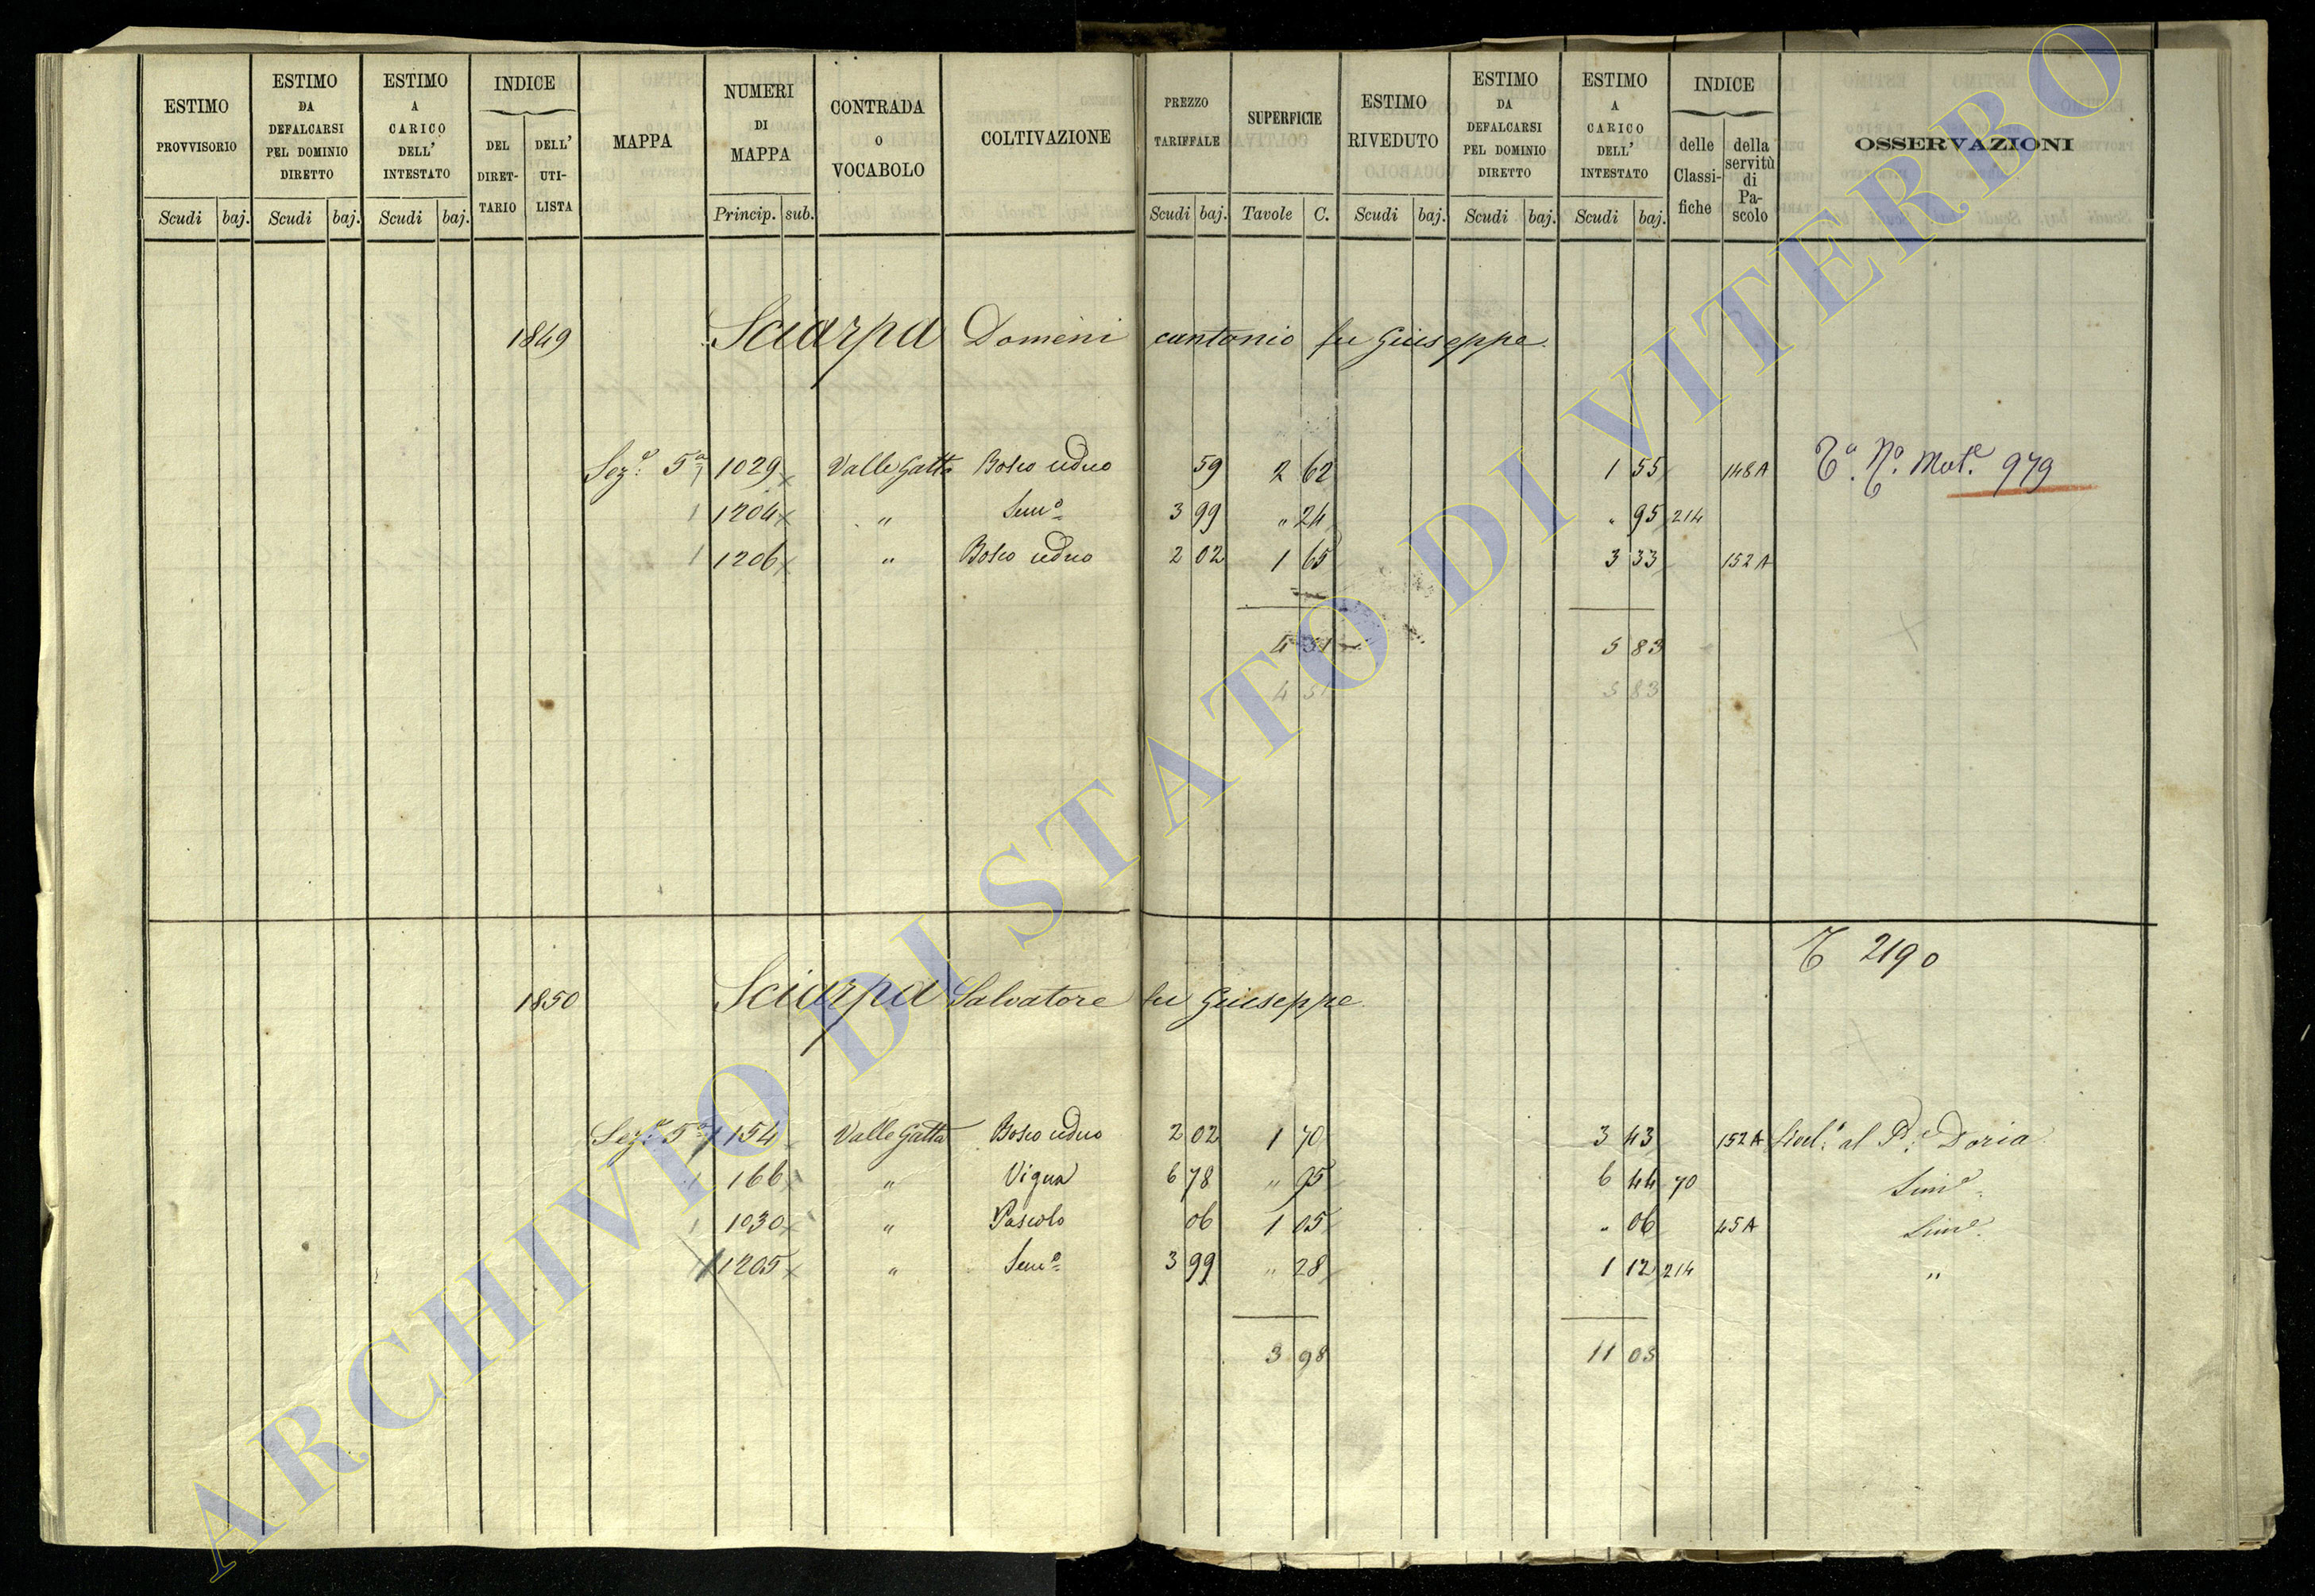 ESTIMO PROVVISORIO Scudi baj.
ESTIMO DA DEFALCARSI PEL DOMINIO DIRETTO Scudi baj.
ESTIMO A CARICO DELL' INTESTATO Scudi baj.
INDICE DEL DIRET- TARIO DELL' UTI- LISTA
MAPPA
NUMERI DI MAPPA Princip. sub.
CONTRADA O VOCABOLO
COLTIVAZIONE
PREZZO TARIFFALE Scudi baj.
SUPERFICIE Tavole C.
ESTIMO RIVEDUTO Scudi baj.
ESTIMO DA DEFALCARSI PEL DOMINIO DIRETTO Scudi baj.
ESTIMO A CARICO DELL' INTESTATO Scudi baj.
INDICE delle Classi- fiche della servitù di Pa- scolo
OSSERVAZIONI
1849 Sciarpa Domenicantonio fu Giuseppe.
Sez.e 5a 1029 Valle Gatta Bosco ceduo 59 2 62 1 55 148A Ta. No. Mate. 979
1204 " Semo 3 99 " 24 " 95 214
1206 " Bosco ceduo 2 02 1 65 3 33 152A
4 51 5 83
4 51 5 83
T 2190
1850 Sciarpa Salvatore fu Giuseppe.
Sez.e 5a 154 Valle Gatta Bosco ceduo 2 02 1 70 3 43 152A al Pe. Doria
166 " Vigna 6 78 " 95 6 44 70 Sime
1030 " Pascolo 06 1 05 " 06 45A Sime.
1205 " Semo 3 99 " 28 1 12 214 "
3 98 11 05
ARCHIVIO DI STATO DI VITERBO